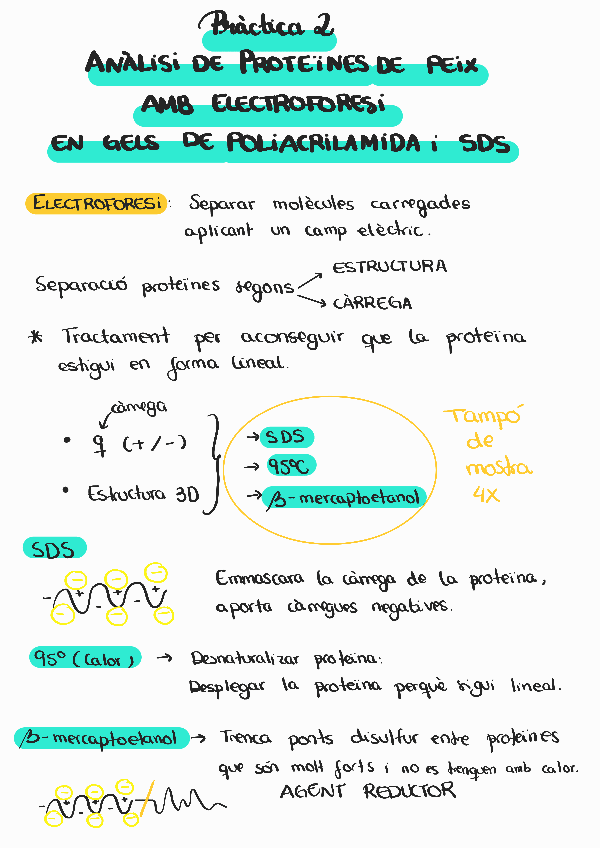 Pràctica 2
ANÀLISI DE PROTEÏNES DE PEIX
AMB ELECTROFORESI
EN GELS DE POLIACRILAMIDA i SDS
ELECTROFORESI: Separar molècules carregades
aplicant un camp elèctric.
Separació proteïnes segons
ESTRUCTURA
CÀRREGA
* Tractament per aconseguir que la proteïna
estigui en forma lineal.
càrrega
• q (+/-)
• Estructura 3D
→ SDS
→ 95ºC
→ β-mercaptoetanol
Tampó
de
mostra
4X
SDS
Emmascara la càrrega de la proteïna,
aporta càrregues negatives.
95º (Calor) → Desnaturalizar proteïna:
Desplegar la proteïna perquè sigui lineal.
β-mercaptoetanol → Trenca ponts disulfur entre proteïnes
que són molt forts i no es trenquen amb calor.
AGENT REDUCTOR